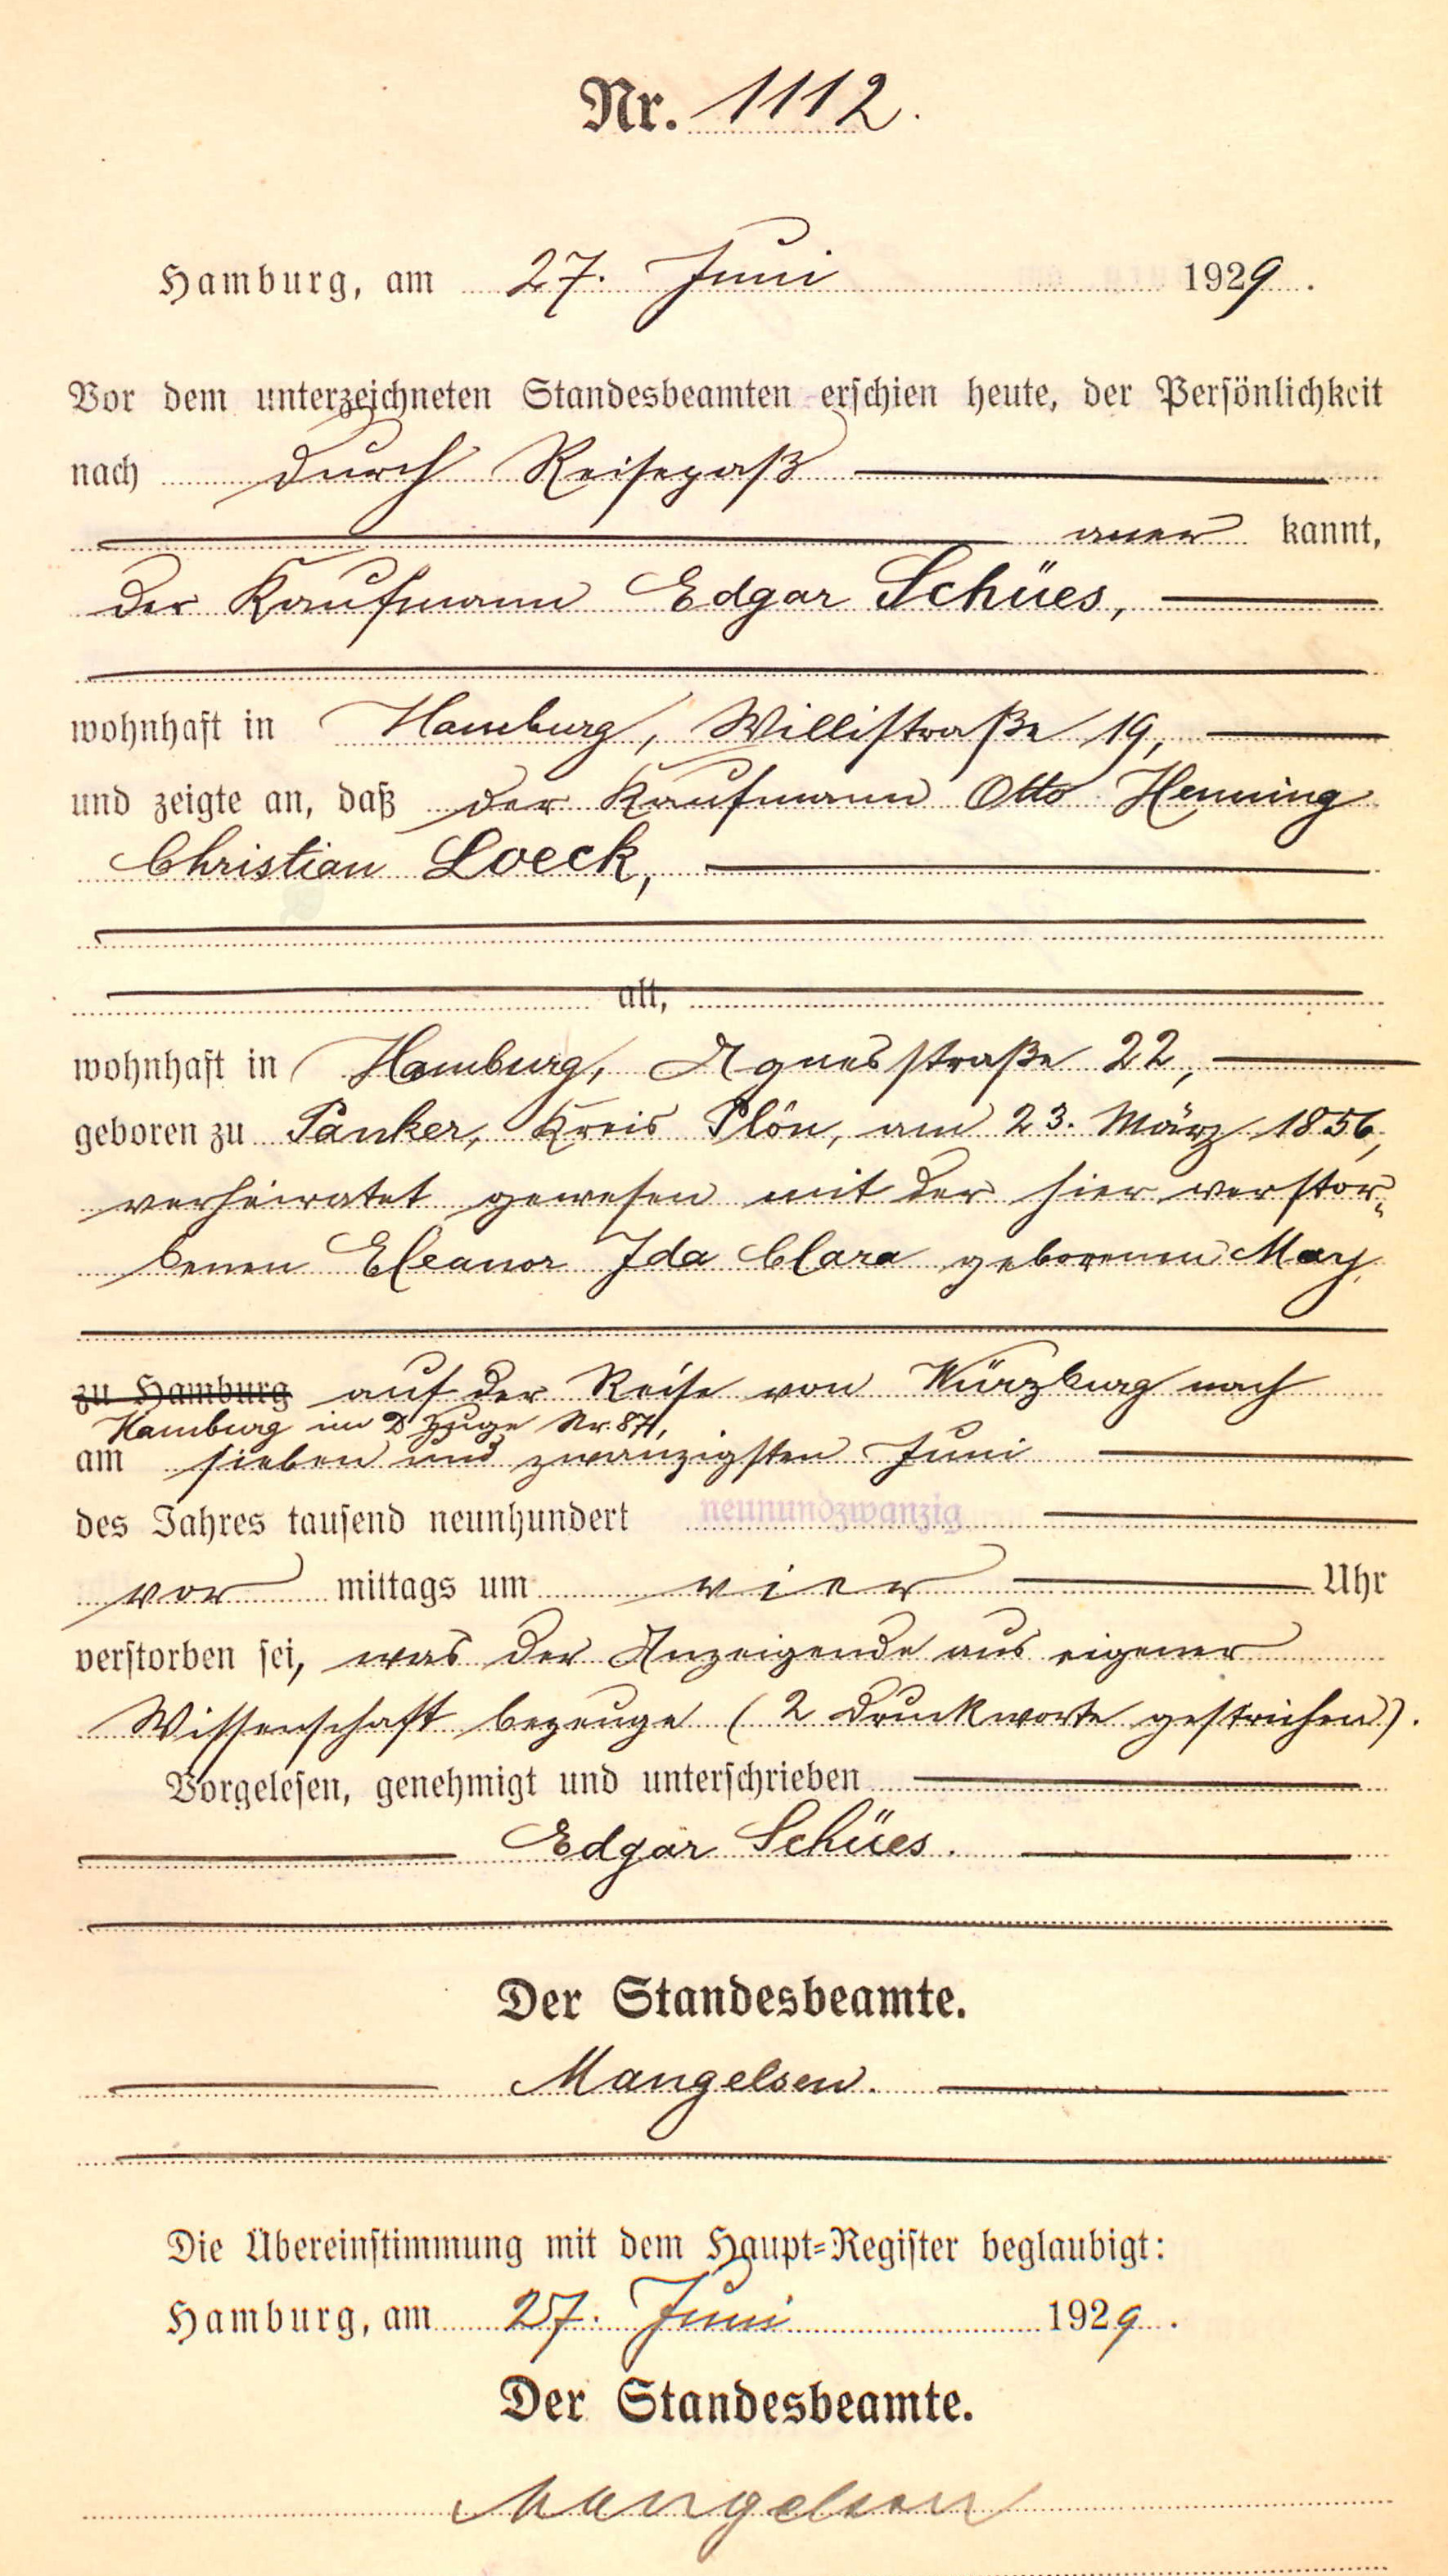 Nr. 1112.
Hamburg, am 27. Juni 1929.
Vor dem unterzeichneten Standesbeamten erschien heute, der Persönlichkeit
nach durch Reisepaß
aner kannt,
der Kaufmann Edgar Schües,
wohnhaft in Hamburg, Willistraße 19,
und zeigte an, daß der Kaufmann Otto Henning
Christian Loeck,
alt,
wohnhaft in Hamburg, Agnesstraße 22,
geboren zu Panker, Kreis Plön, am 23. März 1856,
verheiratet gewesen mit der hier verstor-
benen Eleanor Ida Clara geborenen May,
zu Hamburg auf der Reise von Würzburg nach
Hamburg im D Zuge Nr. 87,
am sieben und zwanzigsten Juni
des Jahres tausend neunhundert neunundzwanzig
vor mittags um vier Uhr
verstorben sei, was der Anzeigende aus eigener
Wissenschaft bezeuge (2 Druckworte gestrichen).
Vorgelesen, genehmigt und unterschrieben
Edgar Schües.
Der Standesbeamte.
Mangelsen.
Die Übereinstimmung mit dem Haupt-Register beglaubigt:
Hamburg, am 27. Juni 1929.
Der Standesbeamte.
Mangelsen